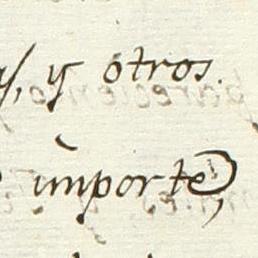 , y otros.
importe,